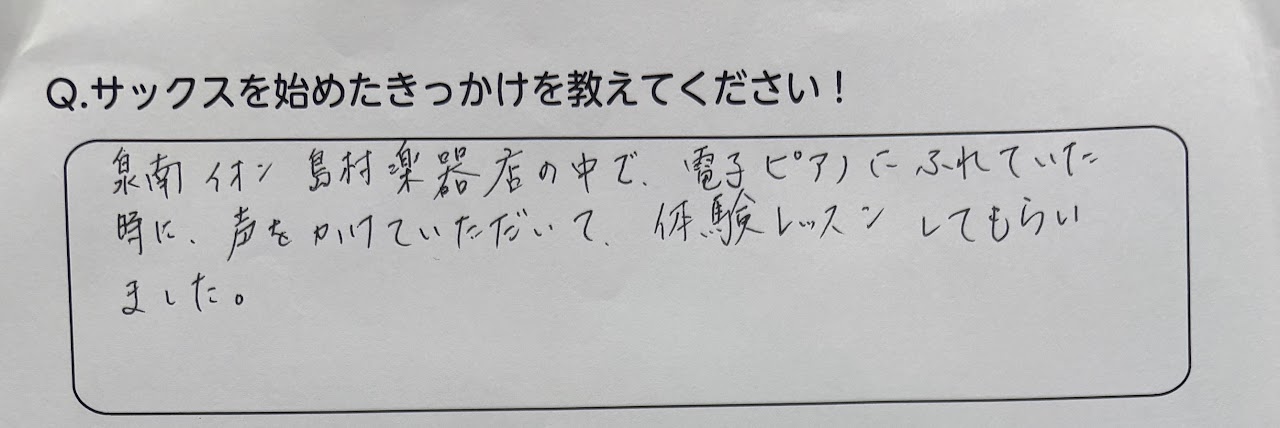 Q.サックスを始めたきっかけを教えてください！
泉南イオン 島村楽器店の中で、電子ピアノにふれていた
時に、声をかけていただいて、体験レッスンしてもらい
ました。